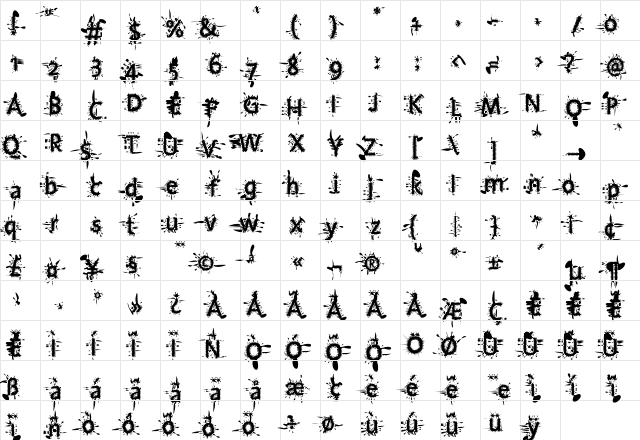 f " # $ % & ' ( ) * + , - . / 0
1 2 3 4 5 6 7 8 9 : ; < = > ? @
A B C D E F G H I J K L M N O P
Q R S T U V W X Y Z [ \ ] ^ _
a b c d e f g h i j k l m n o p
q r s t u v w x y z { | } ~ ¡ ¢
£ ¤ ¥ § ¨ © ª « ¬ ® ¯ ° ± ´ µ ¶
· ¸ º » ¿ À Á Â Ã Ä Å Æ Ç È É Ê
Ë Ì Í Î Ï Ñ Ò Ó Ô Õ Ö Ø Ù Ú Û Ü
ß à á â ã ä å æ ç è é ê ë ì í î
ï ñ ò ó ô õ ö ÷ ø ù ú û ü ÿ